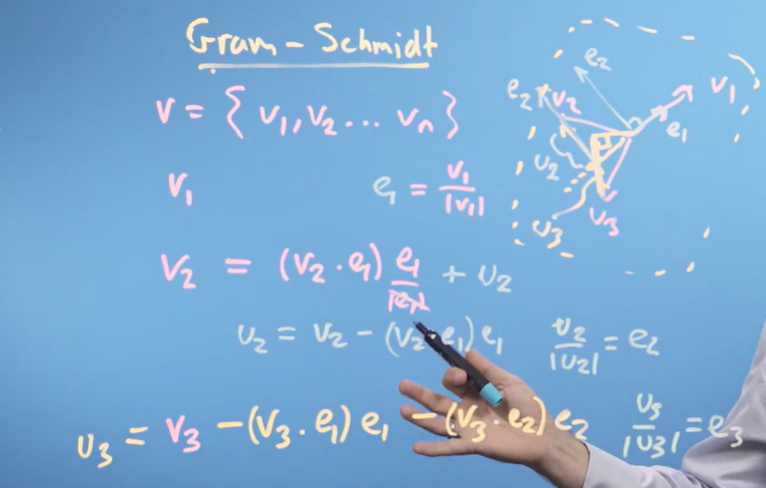 Gram - Schmidt
V = { v₁, v₂ ... vₙ }
v₁ e₁ = v₁/|v₁|
v₂ = (v₂ · e₁) e₁/|e₁| + u₂
u₂ = v₂ - (v₂ · e₁) e₁ u₂/|u₂| = e₂
u₃ = v₃ - (v₃ · e₁) e₁ - (v₃ · e₂) e₂ u₃/|u₃| = e₃
e₂
e₂ v₂ v₁
e₁
u₂
u₃ v₃